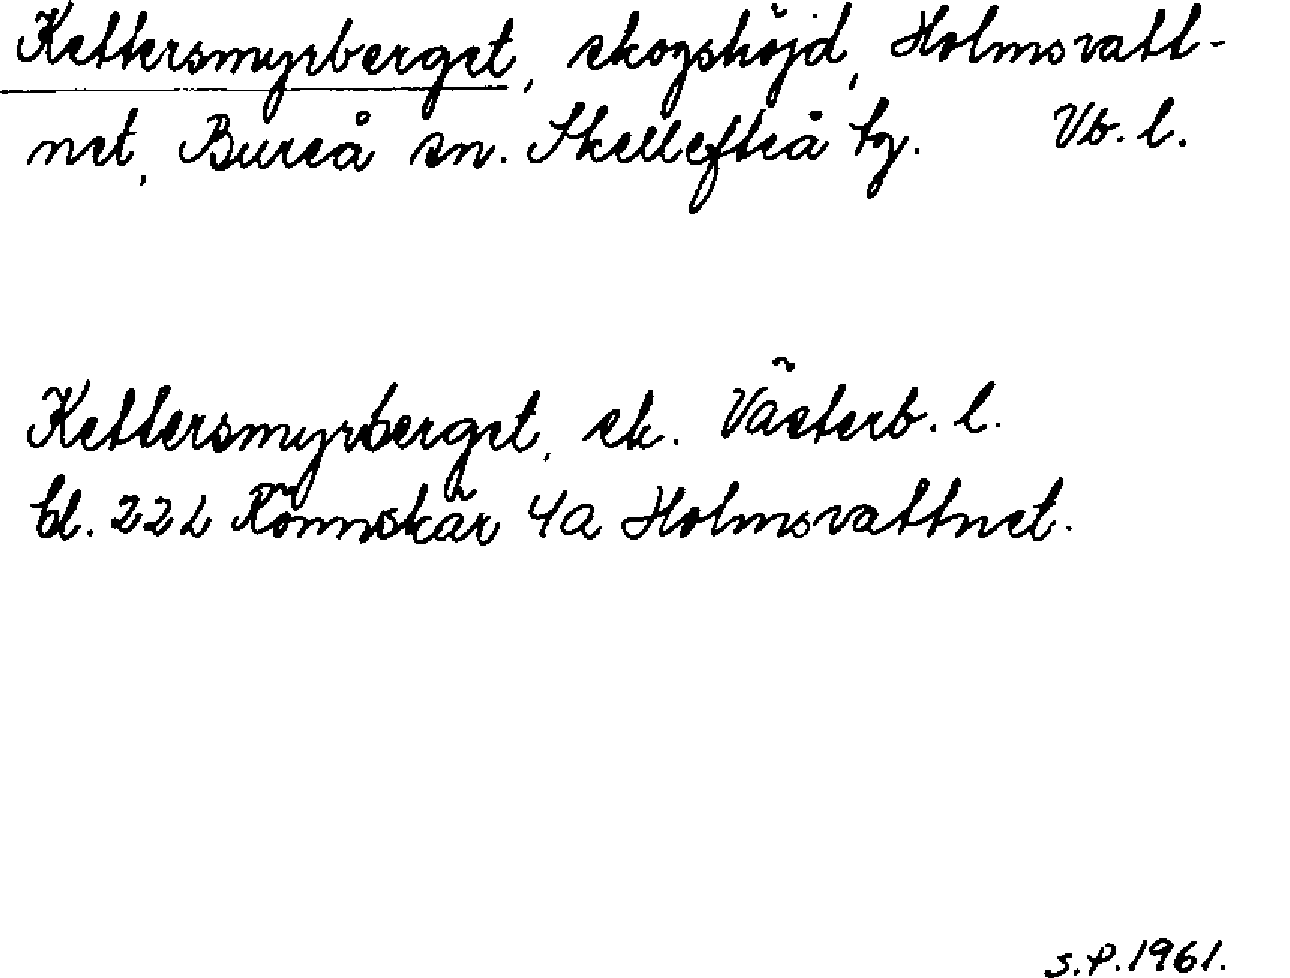 Kettersmyrberget, skogshöjd, Holmsvatt-
net, Bureå sn. Skellefteå tg. Vb. l.
Kettersmyrberget, ek. Västerb. l.
bl. 222 Rönnskär 4a Holmsvattnet.
S.P. 1961.